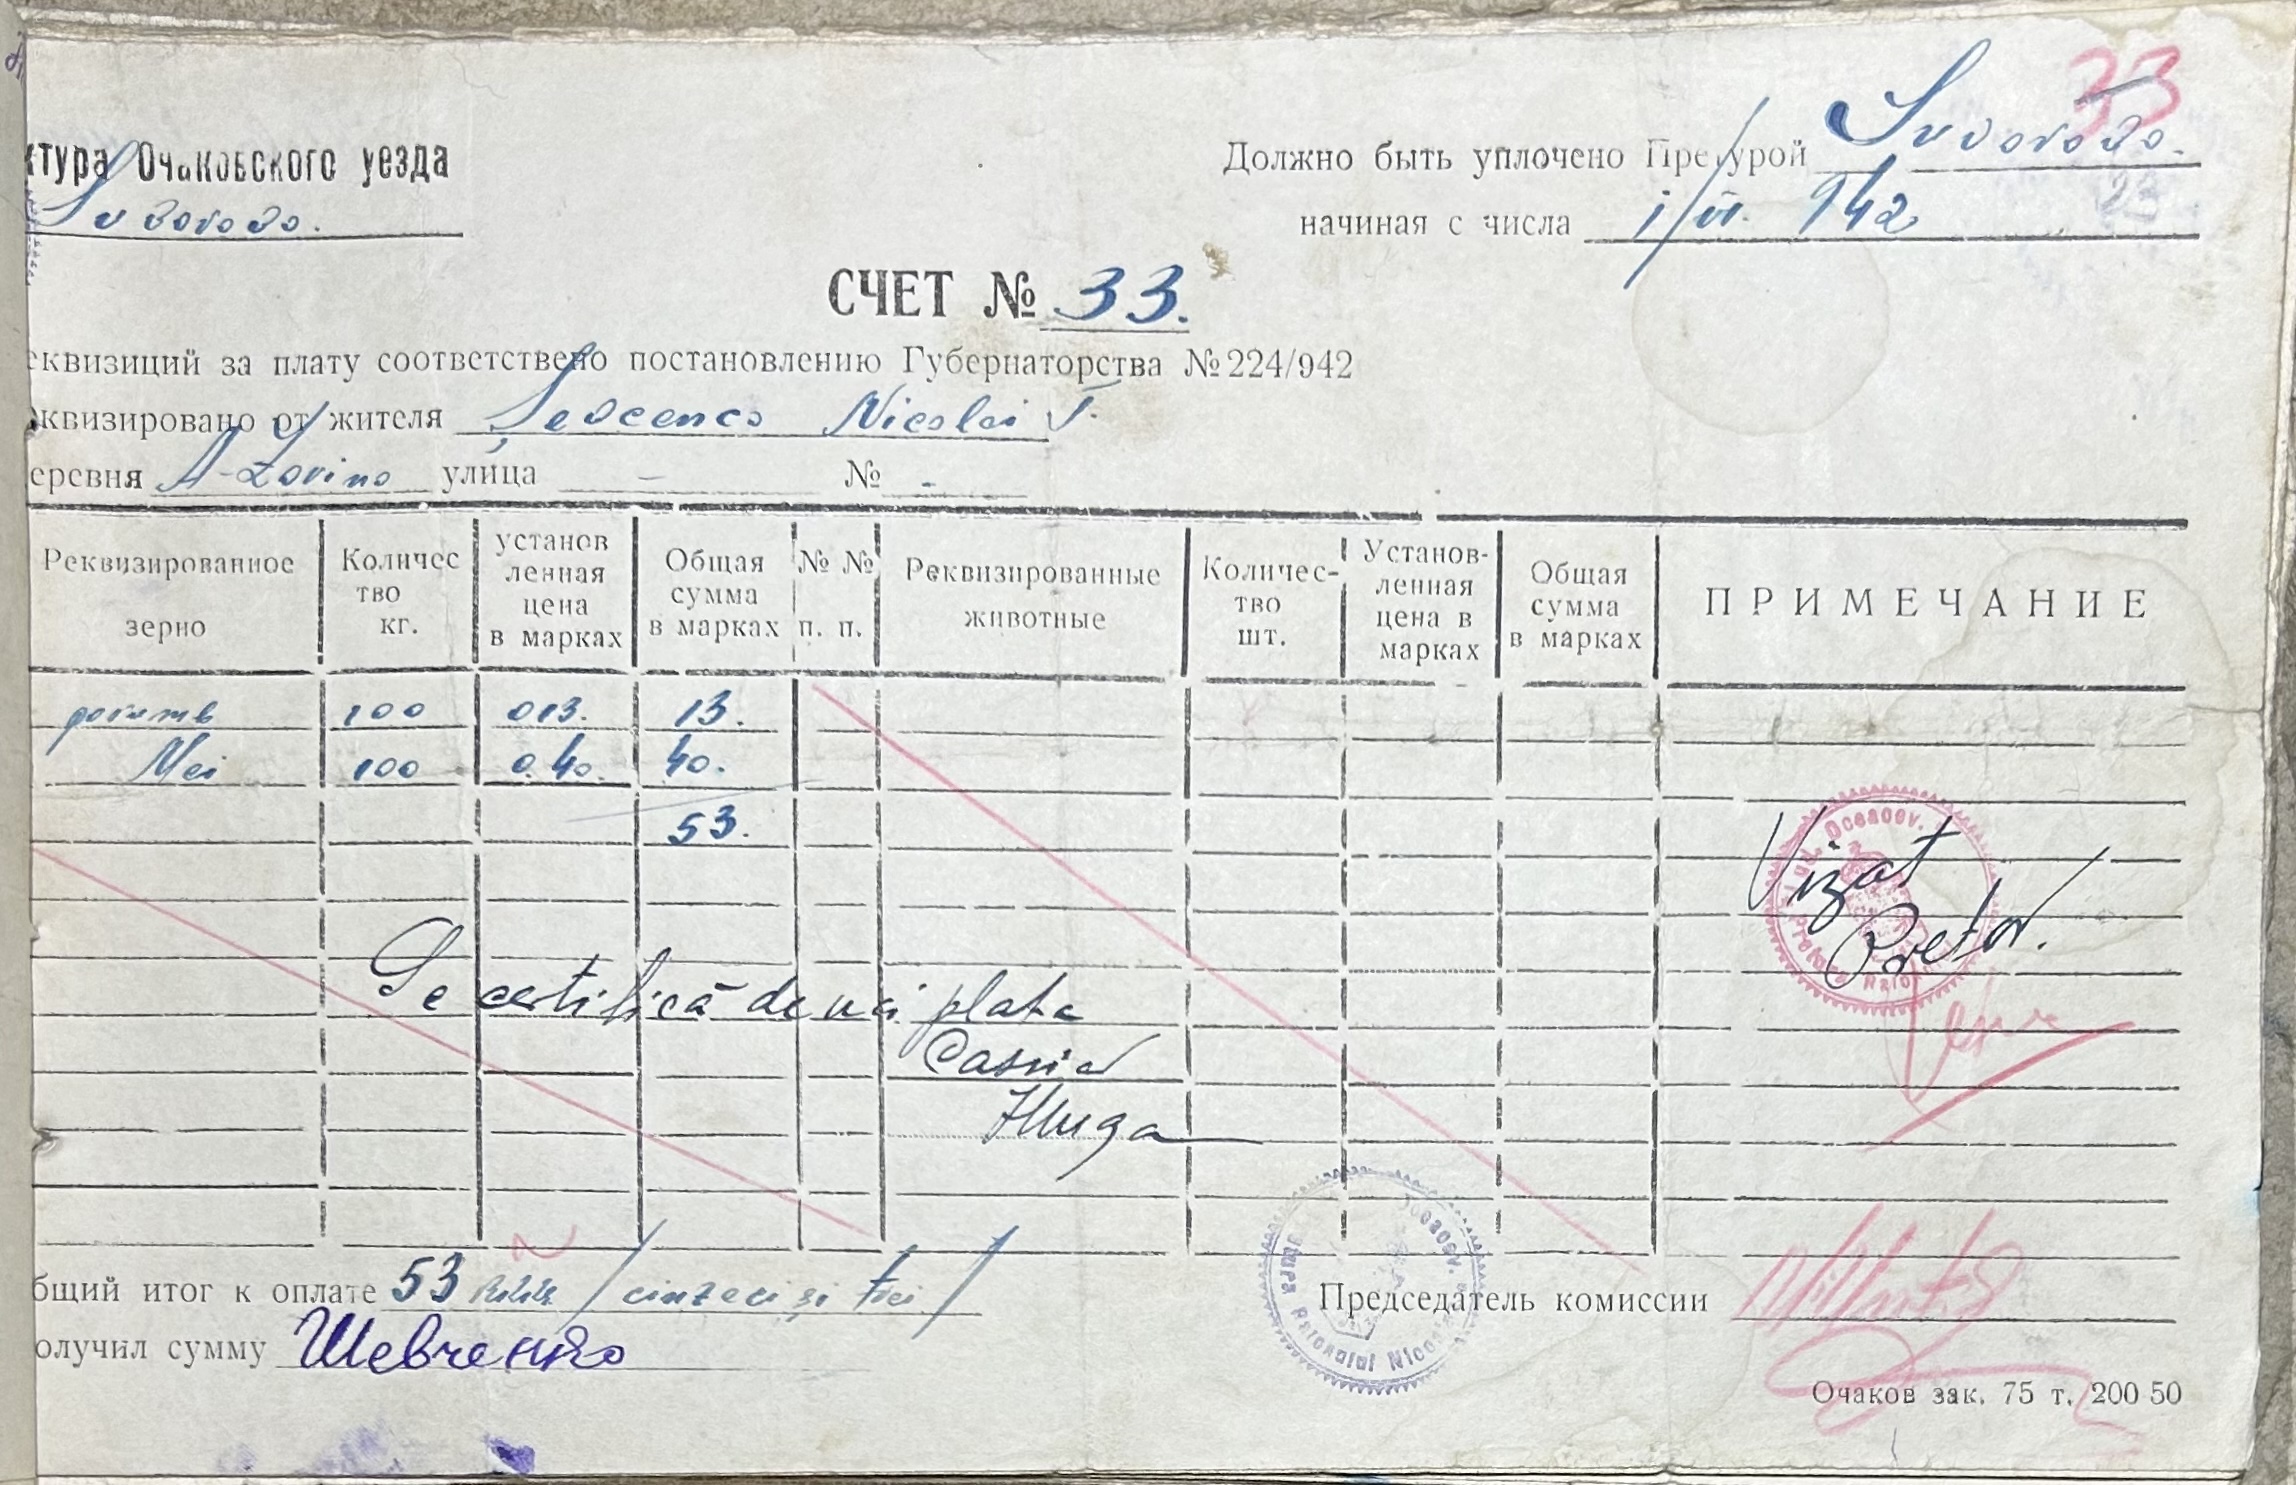 33
ктура Очаковского уезда
Suvorovo.
Должно быть уплочено Претурой Suvorovo.
начиная с числа 1/VI. 942
СЧЕТ № 33.
еквизиций за плату соответствено постановлению Губернаторства № 224/942
еквизировано от жителя Șevcenco Nicolai T.
еревня улица - № -
Реквизированное зерно Количес тво кг. установ ленная цена в марках Общая сумма в марках № № п. п. Реквизированные животные Количес- тво шт. Установ- ленная цена в марках Общая сумма в марках ПРИМЕЧАНИЕ
100 013. 13.
Mei 100 0.40. 40.
53.
Vizat
Pretor.
Se certifică de noi plata
Casier
бщий итог к оплате 53 /cinzeci și trei/
Председатель комиссии
олучил сумму Шевченко
Очаков зак. 75 т. 200 50